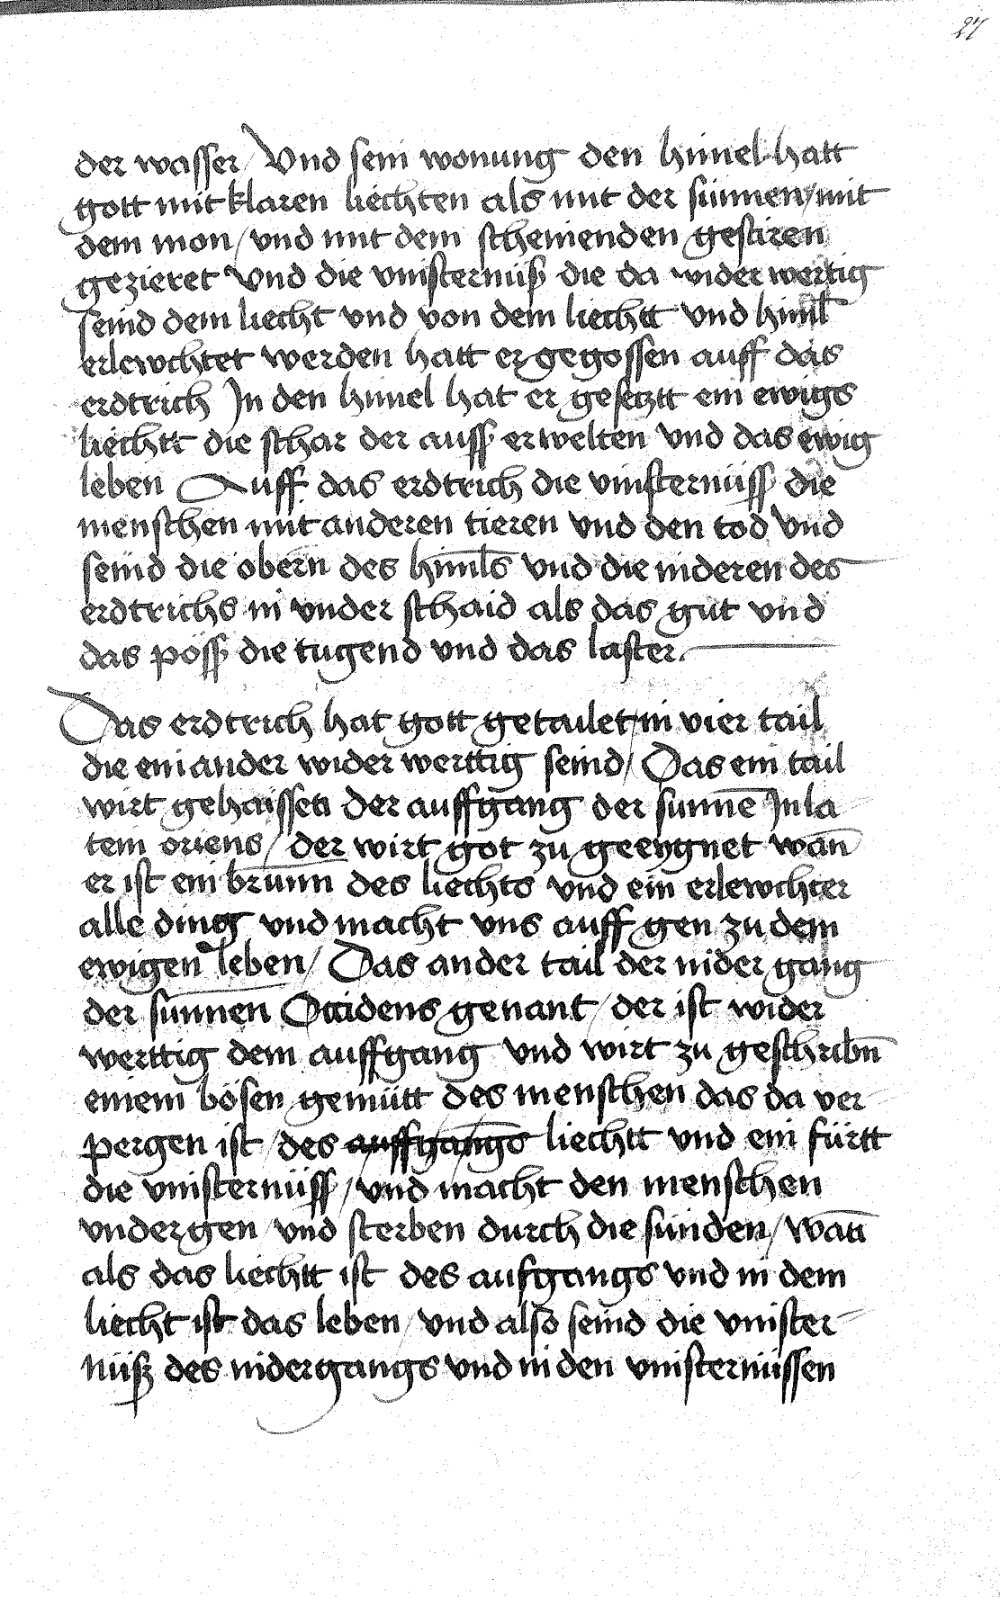 27
der wasser / Vnd sein wonung den himel hatt
gott mit klaren liechten als mit der sünnen / mit
dem mon / vnd mit dem scheinenden gestiren
gezieret Vnd die vinsternüß die da wider wertig
seind dem liecht vnd von dem liechtt vnd himl
erlewchtet werden hatt er gegossen auff das
erdtrich In den himel hat er gesetztt ein ewigs
liechtt die schar der auss erwelten vnd das ewig
leben Auff das erdtrich die vinsternüss die
menschen mit anderen tieren vnd den tod Vnd
seind die obern des himls vnd die nideren des
erdtrichs in vnder schaid als das gut vnd
das poss die tugend vnd das laster.
Das erdtrich hat gott getailet in vier tail
die ein ander wider werttig seind / Das ein tail
wirt gehaissen der auffgang der sunnē In la
tein oriens / der wirt got zu geeygnet wañ
er ist ein brunn des liechts vnd ein erlewchter
alle ding vnd macht vns auff gen zu dem
ewigen leben / Das ander tail der nider gang
der sunnen Occidens genant / der ist wider
werttig dem auffgang vnd wirt zu geschribn̄
einem bösen gemütt des menschen das da ver
pergen ist / des auffgangs liechtt vnd ein fürtt
die vinsternüss / vnd macht den menschen
vndergen / vnd sterben durch die sünden / wañ
als das liechtt ist des aufgangs vnd in dem
liecht ist das leben / vnd also seind die vinster
nüß des nidergangs vnd in den vinsternüssen